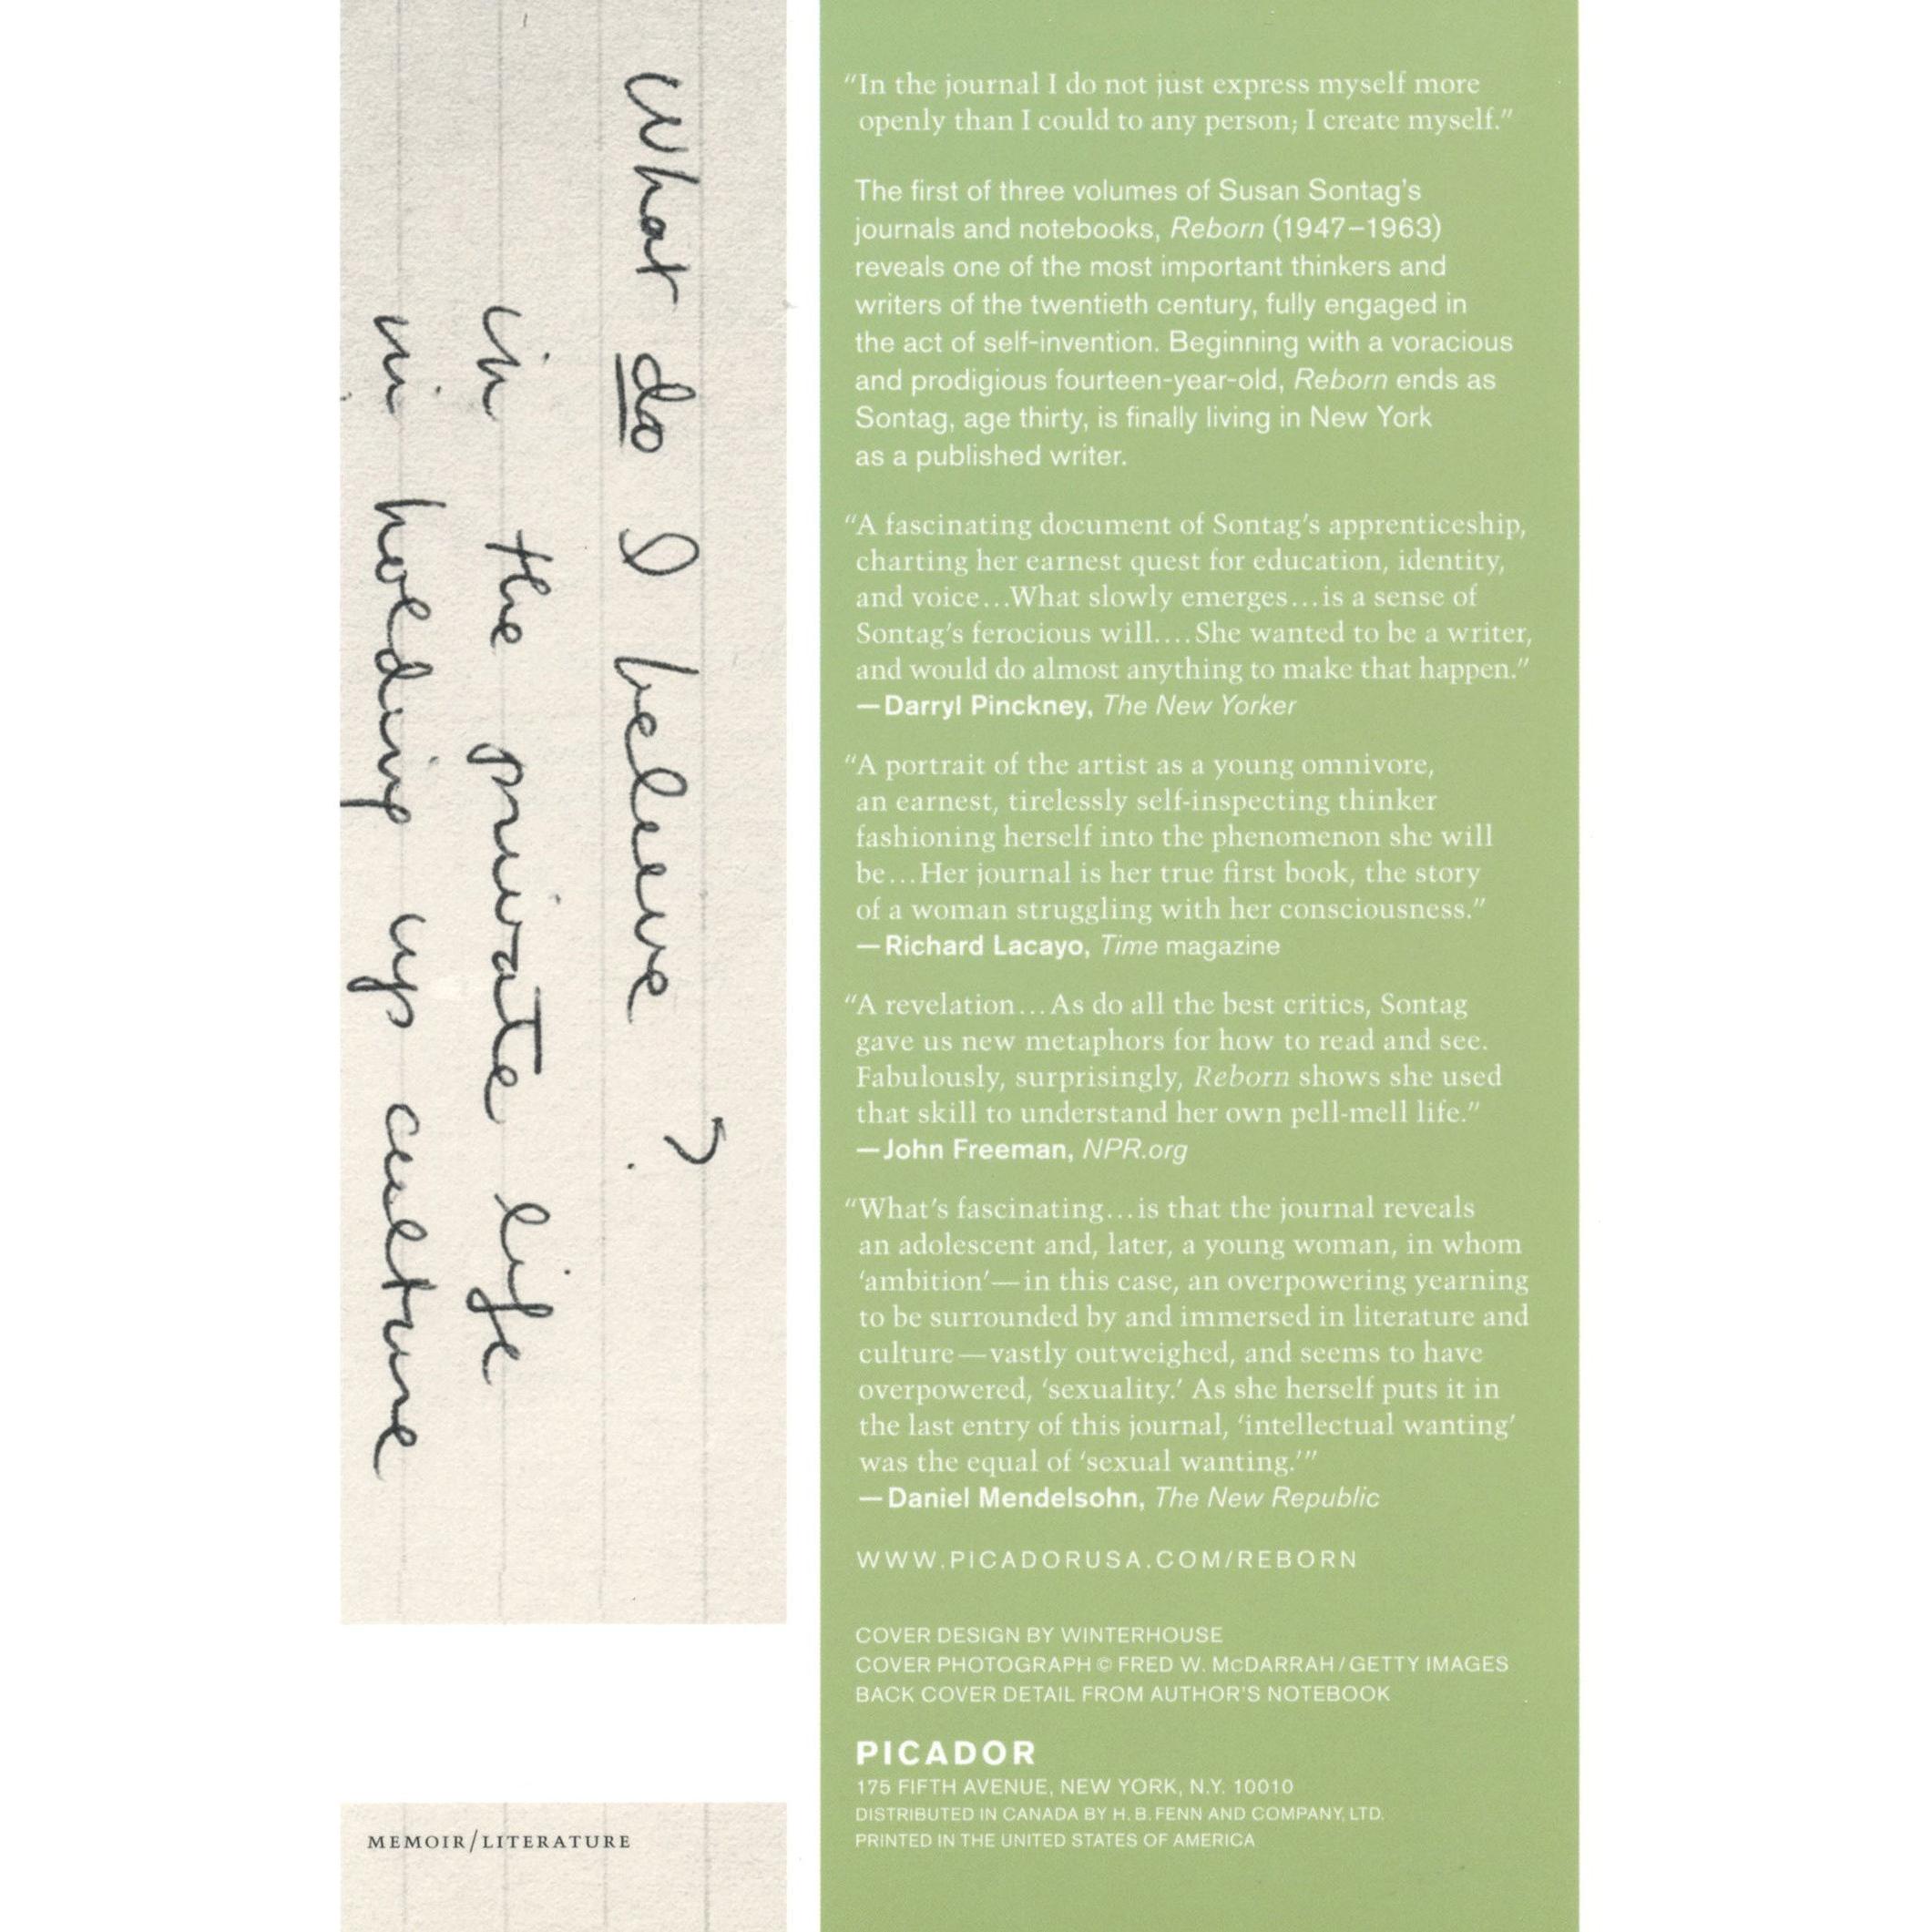 What do I believe?
in the private life
in holding up culture
MEMOIR/LITERATURE
“In the journal I do not just express myself more
openly than I could to any person; I create myself.”
The first of three volumes of Susan Sontag’s
journals and notebooks, Reborn (1947–1963)
reveals one of the most important thinkers and
writers of the twentieth century, fully engaged in
the act of self-invention. Beginning with a voracious
and prodigious fourteen-year-old, Reborn ends as
Sontag, age thirty, is finally living in New York
as a published writer.
“A fascinating document of Sontag’s apprenticeship,
charting her earnest quest for education, identity,
and voice...What slowly emerges...is a sense of
Sontag’s ferocious will....She wanted to be a writer,
and would do almost anything to make that happen.”
—Darryl Pinckney, The New Yorker
“A portrait of the artist as a young omnivore,
an earnest, tirelessly self-inspecting thinker
fashioning herself into the phenomenon she will
be...Her journal is her true first book, the story
of a woman struggling with her consciousness.”
—Richard Lacayo, Time magazine
“A revelation...As do all the best critics, Sontag
gave us new metaphors for how to read and see.
Fabulously, surprisingly, Reborn shows she used
that skill to understand her own pell-mell life.”
—John Freeman, NPR.org
“What’s fascinating...is that the journal reveals
an adolescent and, later, a young woman, in whom
‘ambition’—in this case, an overpowering yearning
to be surrounded by and immersed in literature and
culture—vastly outweighed, and seems to have
overpowered, ‘sexuality.’ As she herself puts it in
the last entry of this journal, ‘intellectual wanting’
was the equal of ‘sexual wanting.’”
—Daniel Mendelsohn, The New Republic
WWW.PICADORUSA.COM/REBORN
COVER DESIGN BY WINTERHOUSE
COVER PHOTOGRAPH © FRED W. McDARRAH/GETTY IMAGES
BACK COVER DETAIL FROM AUTHOR’S NOTEBOOK
PICADOR
175 FIFTH AVENUE, NEW YORK, N.Y. 10010
DISTRIBUTED IN CANADA BY H. B. FENN AND COMPANY, LTD.
PRINTED IN THE UNITED STATES OF AMERICA